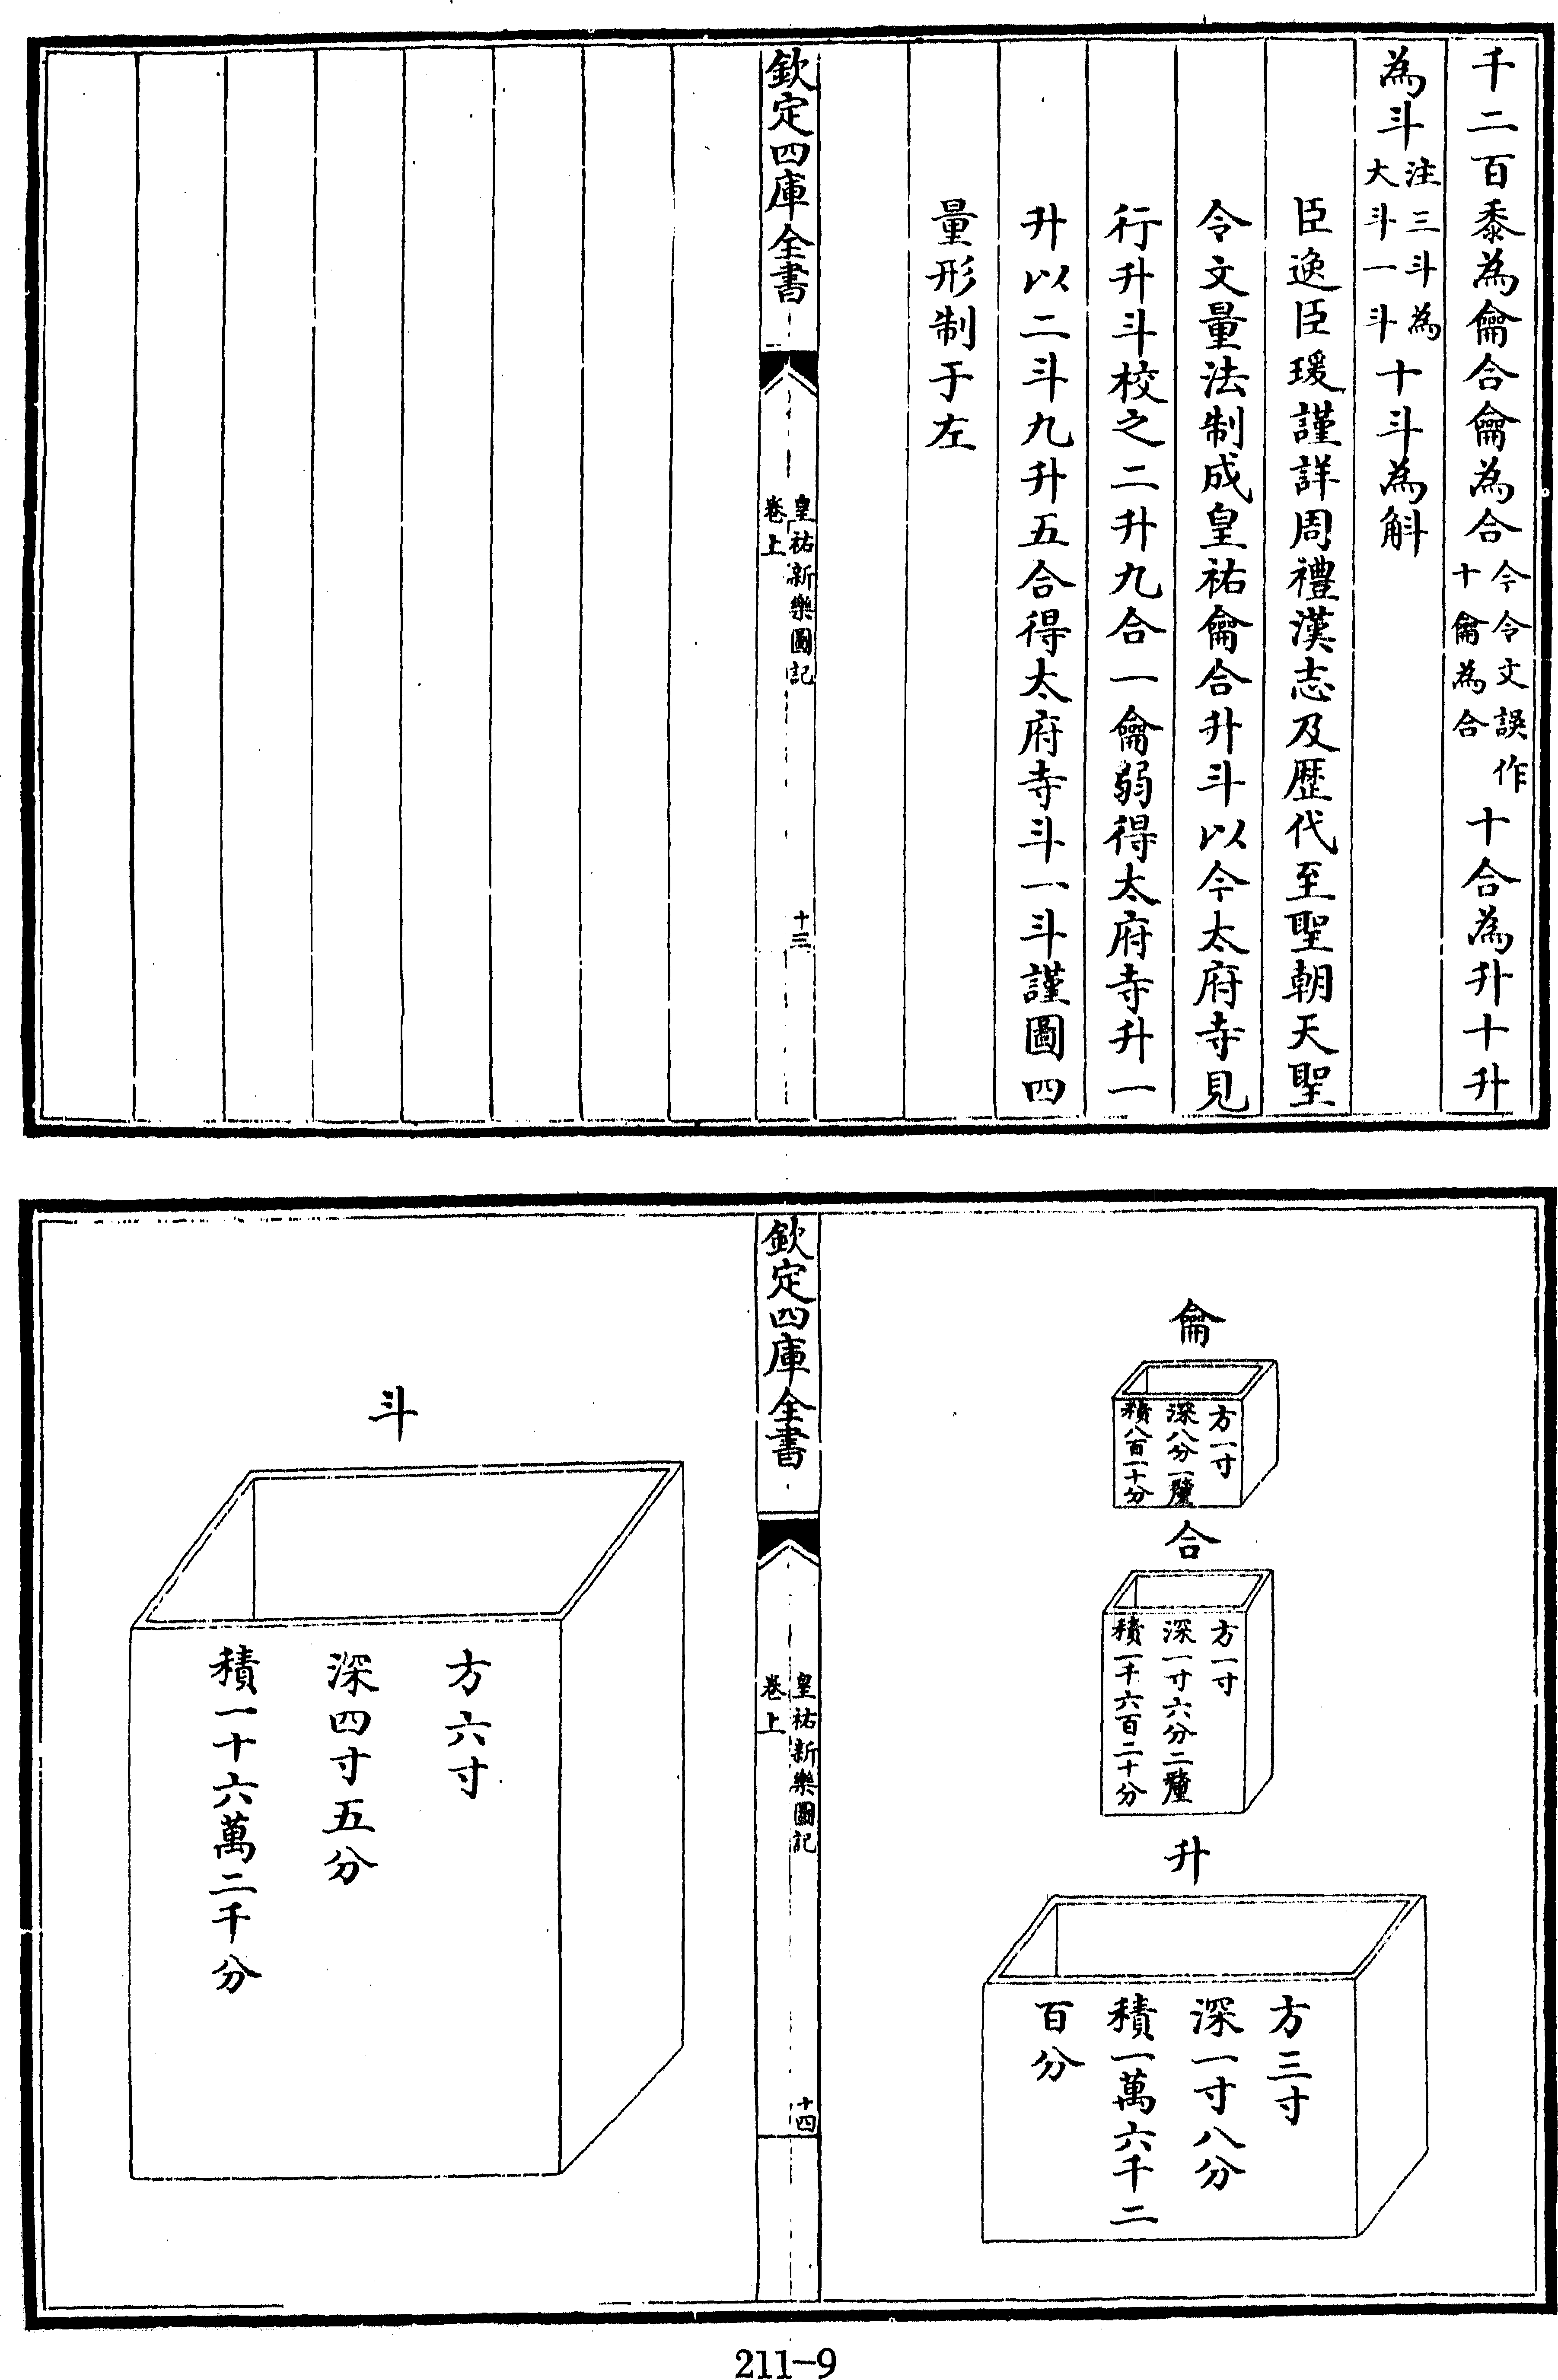 千二百黍為龠合龠為合今令文誤作十龠為合十合為升十升
為斗注三斗為大斗一斗十斗為斛
臣逸臣瑗謹詳周禮漢志及歴代至聖朝天聖
令文量法制成皇祐龠合升斗以今太府寺見
行升斗校之二升九合一龠弱得太府寺升一
升以二斗九升五合得太府寺斗一斗謹圖四
量形制于左
欽定四庫全書
皇祐新樂圖記
卷上
十三
龠
方一寸
深八分一釐
積八百一十分
合
方一寸
深一寸六分二釐
積一千六百二十分
升
方三寸
深一寸八分
積一萬六千二
百分
欽定四庫全書
皇祐新樂圖記
卷上
十四
斗
方六寸
深四寸五分
積一十六萬二千分
211-9